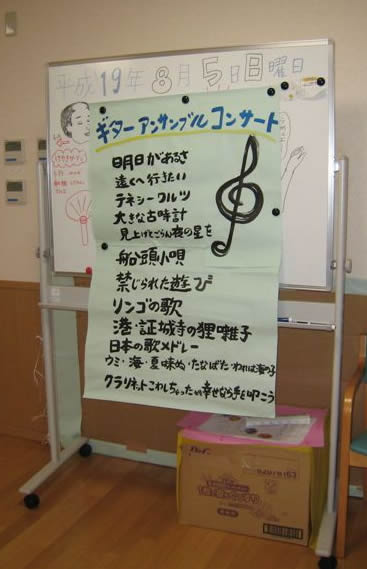 平成19年8月5日日曜日
ギターアンサンブルコンサート
明日があるさ
遠くへ行きたい
テネシーワルツ
大きな古時計
見上げてごらん夜の星を
船頭小唄
禁じられた遊び
リンゴの歌
港・証城寺の狸囃子
日本の歌メドレー
ウミ・海・夏は来ぬ・たなばた・われは海の子
クラリネットこわしちゃった・幸せなら手を叩こう